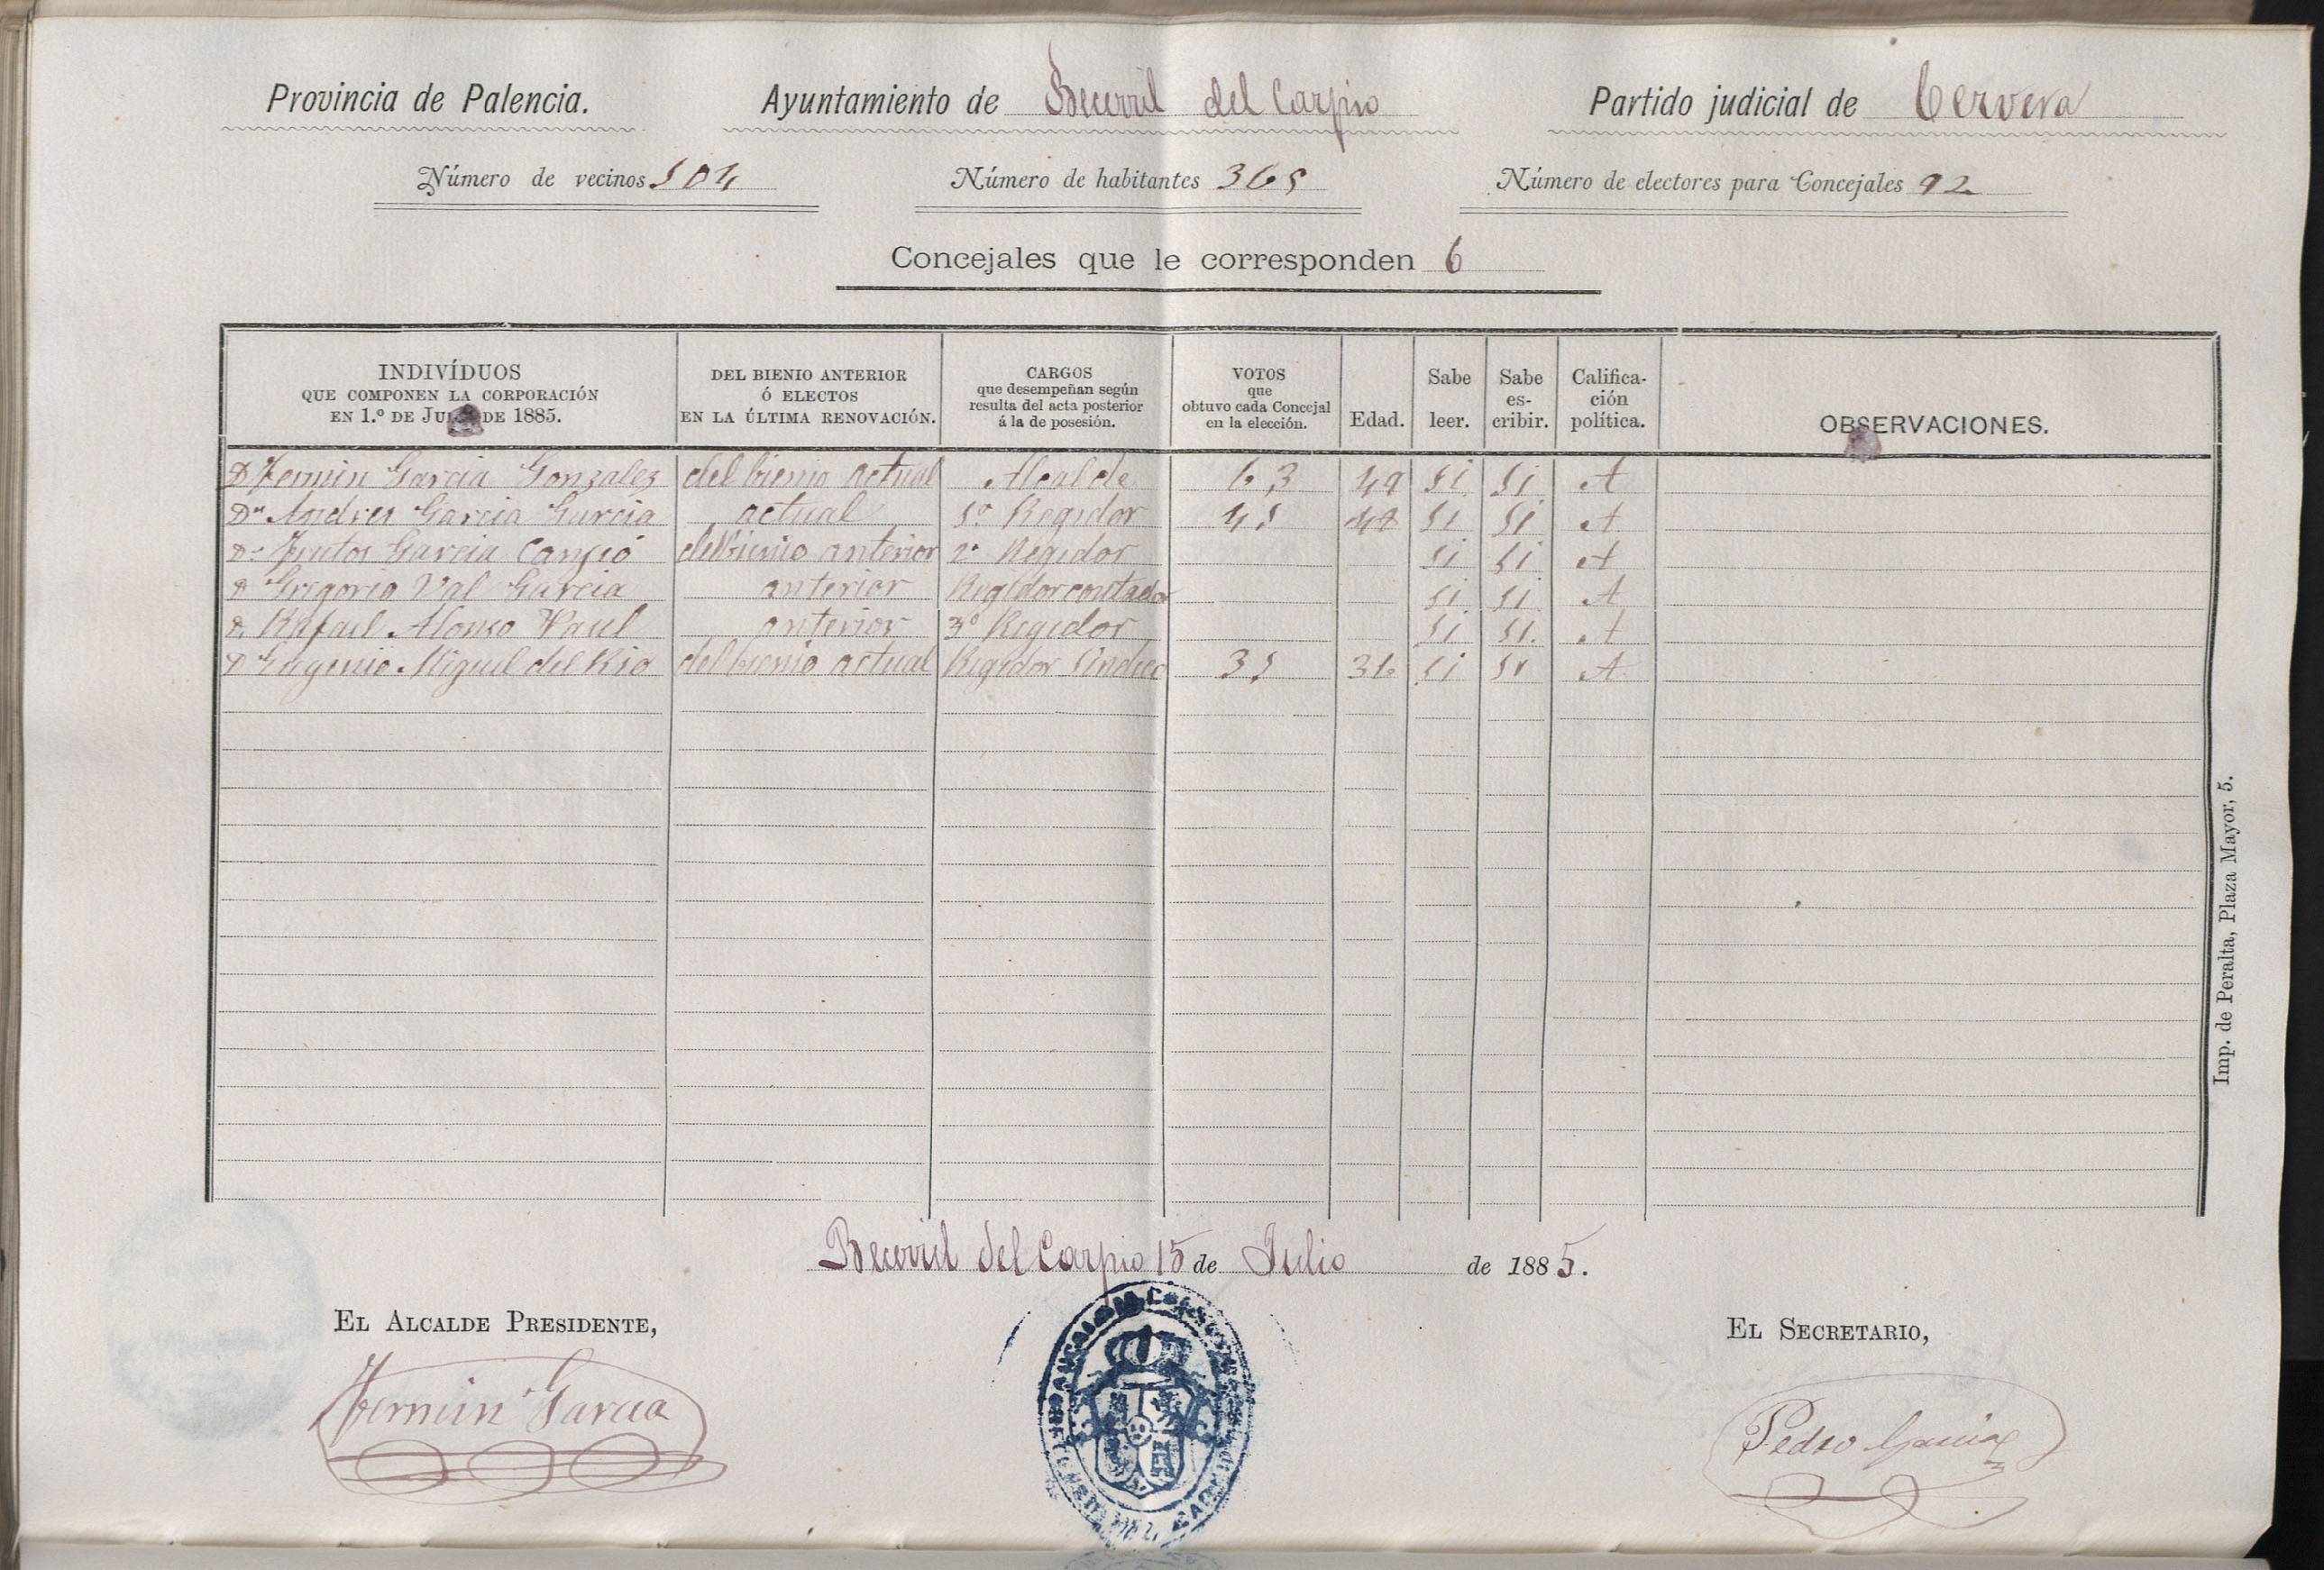 Provincia de Palencia. Ayuntamiento de Becerril del Carpio Partido judicial de Cervera
Número de vecinos 104 Número de habitantes 365 Número de electores para Concejales 92
Concejales que le corresponden 6
INDIVÍDUOS QUE COMPONEN LA CORPORACIÓN EN 1.º DE JULIO DE 1885. DEL BIENIO ANTERIOR Ó ELECTOS EN LA ÚLTIMA RENOVACIÓN. CARGOS que desempeñan según resulta del acta posterior á la de posesión. VOTOS que obtuvo cada Concejal en la elección. Edad. Sabe leer. Sabe escribir. Calificación política. OBSERVACIONES.
D. Fermin Garcia Gonzalez del bienio actual Alcalde 63 49 si si A
Dn Andres Garcia Garcia actual 1º Regidor 41 48 si si A
D. Frutos Garcia del bienio anterior 2º Regidor si si A
D. Gregorio Val Garcia anterior Regidor contador si si A
D. Rafael Alonso anterior 3º Regidor si si A
D. Eugenio Miguel del Rio del bienio actual Regidor Sindico 31 36 si si A
Becerril del Carpio 15 de Julio de 1885.
EL ALCALDE PRESIDENTE, EL SECRETARIO,
Fermin Garcia Pedro Garcia
Imp. de Peralta, Plaza Mayor, 5.